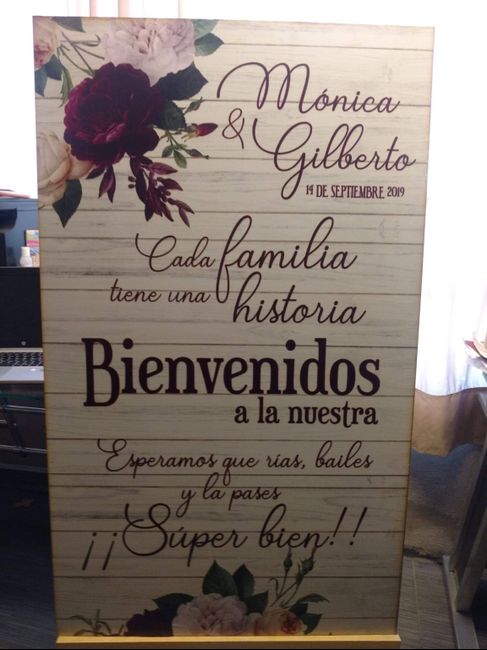 Mónica
& Gilberto
14 DE SEPTIEMBRE 2019
Cada familia
tiene una historia
Bienvenidos
a la nuestra
Esperamos que rías, bailes
y la pases
¡¡Súper bien!!